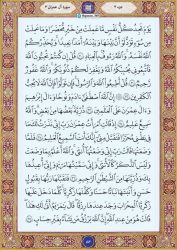 سورة آل عمران ٣
جزء ٣
يَوْمَ تَجِدُ كُلُّ نَفْسٍ مَّا عَمِلَتْ مِنْ خَيْرٍ مُّحْضَرًا وَمَا عَمِلَتْ
مِن سُوٓءٍ تَوَدُّ لَوْ أَنَّ بَيْنَهَا وَبَيْنَهُۥٓ أَمَدًۢا بَعِيدًا وَيُحَذِّرُكُمُ
ٱللَّهُ نَفْسَهُۥ وَٱللَّهُ رَءُوفٌۢ بِٱلْعِبَادِ ۝٣٠ قُلْ إِن كُنتُمْ تُحِبُّونَ ٱللَّهَ
فَٱتَّبِعُونِى يُحْبِبْكُمُ ٱللَّهُ وَيَغْفِرْ لَكُمْ ذُنُوبَكُمْ وَٱللَّهُ غَفُورٌ رَّحِيمٌ
۝٣١ قُلْ أَطِيعُوا۟ ٱللَّهَ وَٱلرَّسُولَ فَإِن تَوَلَّوْا۟ فَإِنَّ ٱللَّهَ لَا يُحِبُّ
ٱلْكَٰفِرِينَ ۝٣٢ إِنَّ ٱللَّهَ ٱصْطَفَىٰٓ ءَادَمَ وَنُوحًا وَءَالَ إِبْرَٰهِيمَ
وَءَالَ عِمْرَٰنَ عَلَى ٱلْعَٰلَمِينَ ۝٣٣ ذُرِّيَّةًۢ بَعْضُهَا مِنۢ بَعْضٍ وَٱللَّهُ
سَمِيعٌ عَلِيمٌ ۝٣٤ إِذْ قَالَتِ ٱمْرَأَتُ عِمْرَٰنَ رَبِّ إِنِّى نَذَرْتُ لَكَ
مَا فِى بَطْنِى مُحَرَّرًا فَتَقَبَّلْ مِنِّىٓ إِنَّكَ أَنتَ ٱلسَّمِيعُ ٱلْعَلِيمُ ۝٣٥
فَلَمَّا وَضَعَتْهَا قَالَتْ رَبِّ إِنِّى وَضَعْتُهَآ أُنثَىٰ وَٱللَّهُ أَعْلَمُ بِمَا وَضَعَتْ
وَلَيْسَ ٱلذَّكَرُ كَٱلْأُنثَىٰ وَإِنِّى سَمَّيْتُهَا مَرْيَمَ وَإِنِّىٓ أُعِيذُهَا
بِكَ وَذُرِّيَّتَهَا مِنَ ٱلشَّيْطَٰنِ ٱلرَّجِيمِ ۝٣٦ فَتَقَبَّلَهَا رَبُّهَا بِقَبُولٍ
حَسَنٍ وَأَنۢبَتَهَا نَبَاتًا حَسَنًا وَكَفَّلَهَا زَكَرِيَّا كُلَّمَا دَخَلَ عَلَيْهَا
زَكَرِيَّا ٱلْمِحْرَابَ وَجَدَ عِندَهَا رِزْقًا قَالَ يَٰمَرْيَمُ أَنَّىٰ لَكِ هَٰذَا
قَالَتْ هُوَ مِنْ عِندِ ٱللَّهِ إِنَّ ٱللَّهَ يَرْزُقُ مَن يَشَآءُ بِغَيْرِ حِسَابٍ ۝٣٧
٥٤